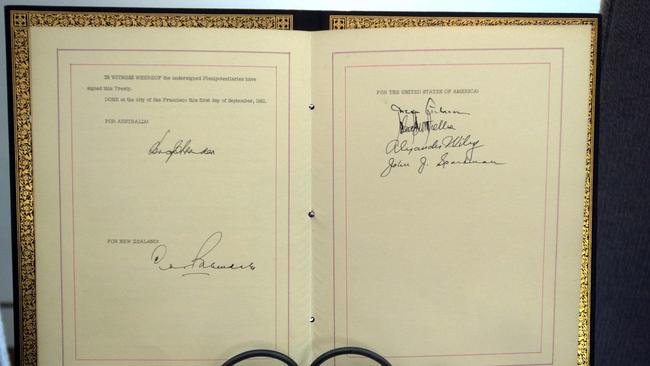 IN WITNESS WHEREOF the undersigned Plenipotentiaries have
signed this Treaty.
DONE at the city of San Francisco this first day of September, 1951.
FOR AUSTRALIA:
FOR NEW ZEALAND:
FOR THE UNITED STATES OF AMERICA:
Alexander Wiley
John J. Sparkman